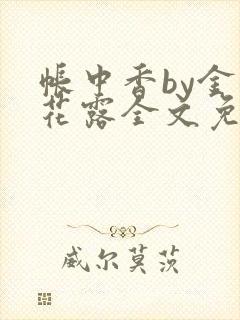 帐中香by金
花露全文免
威尔莫茨